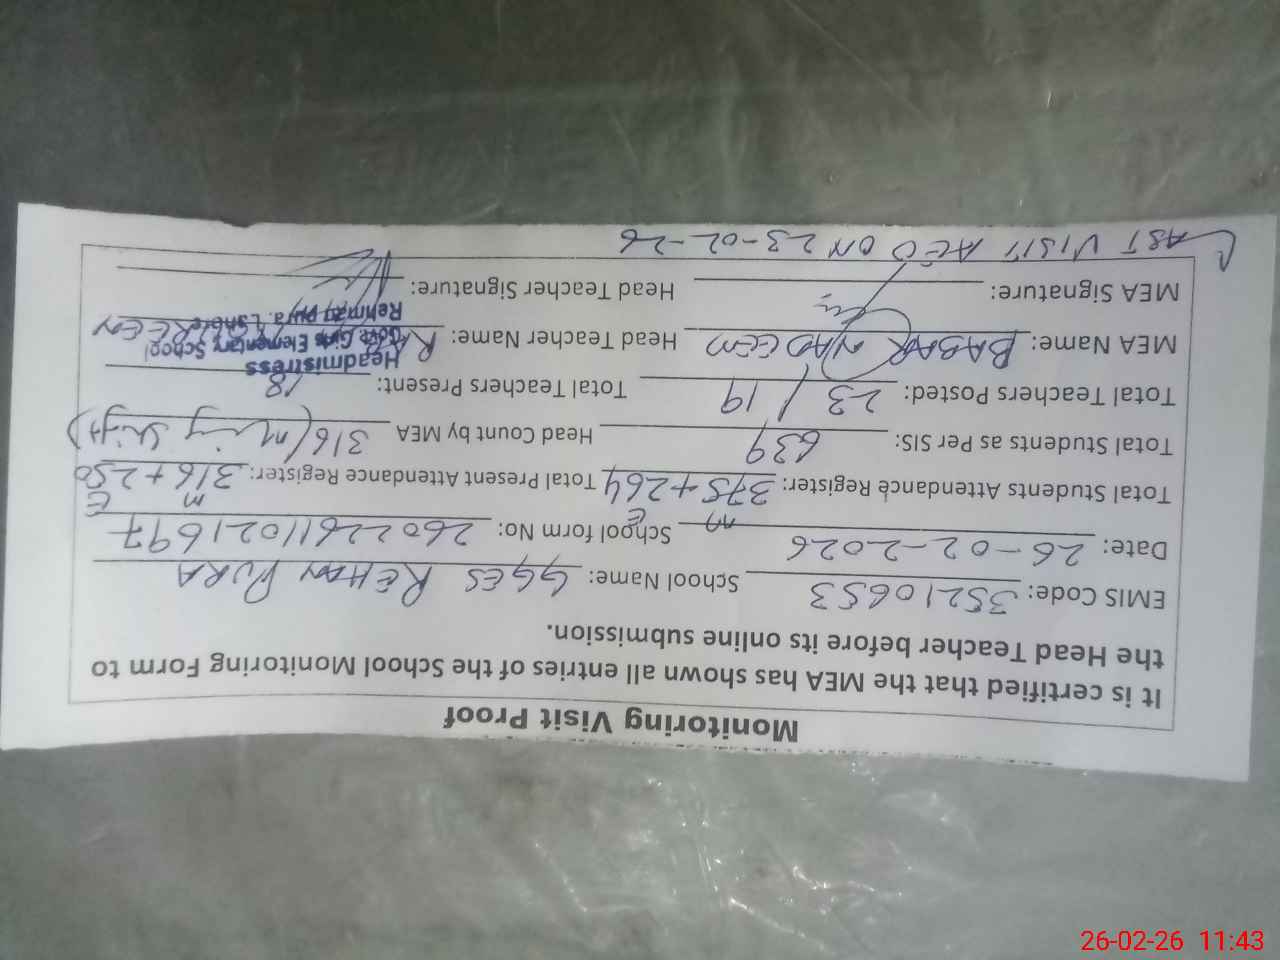 Monitoring Visit Proof
It is certified that the MEA has shown all entries of the School Monitoring Form to
the Head Teacher before its online submission.
EMIS Code: 35210653 School Name: GGES REHAN PURA
Date: 26-02-2026 School form No: 26022611021697
M E M E
Total Students Attendance Register: 375+264 Total Present Attendance Register: 316+250
Total Students as Per SIS: 639 Head Count by MEA 316 (Mng Shift)
Total Teachers Posted: 23/19 Total Teachers Present: 18
MEA Name: BABAR NADEEM Head Teacher Name:
Headmistress
Govt. Girls Elementary School
Rehman Pura, Lahore
MEA Signature: Head Teacher Signature:
LAST VISIT AEO ON 23-02-26
26-02-26 11:43